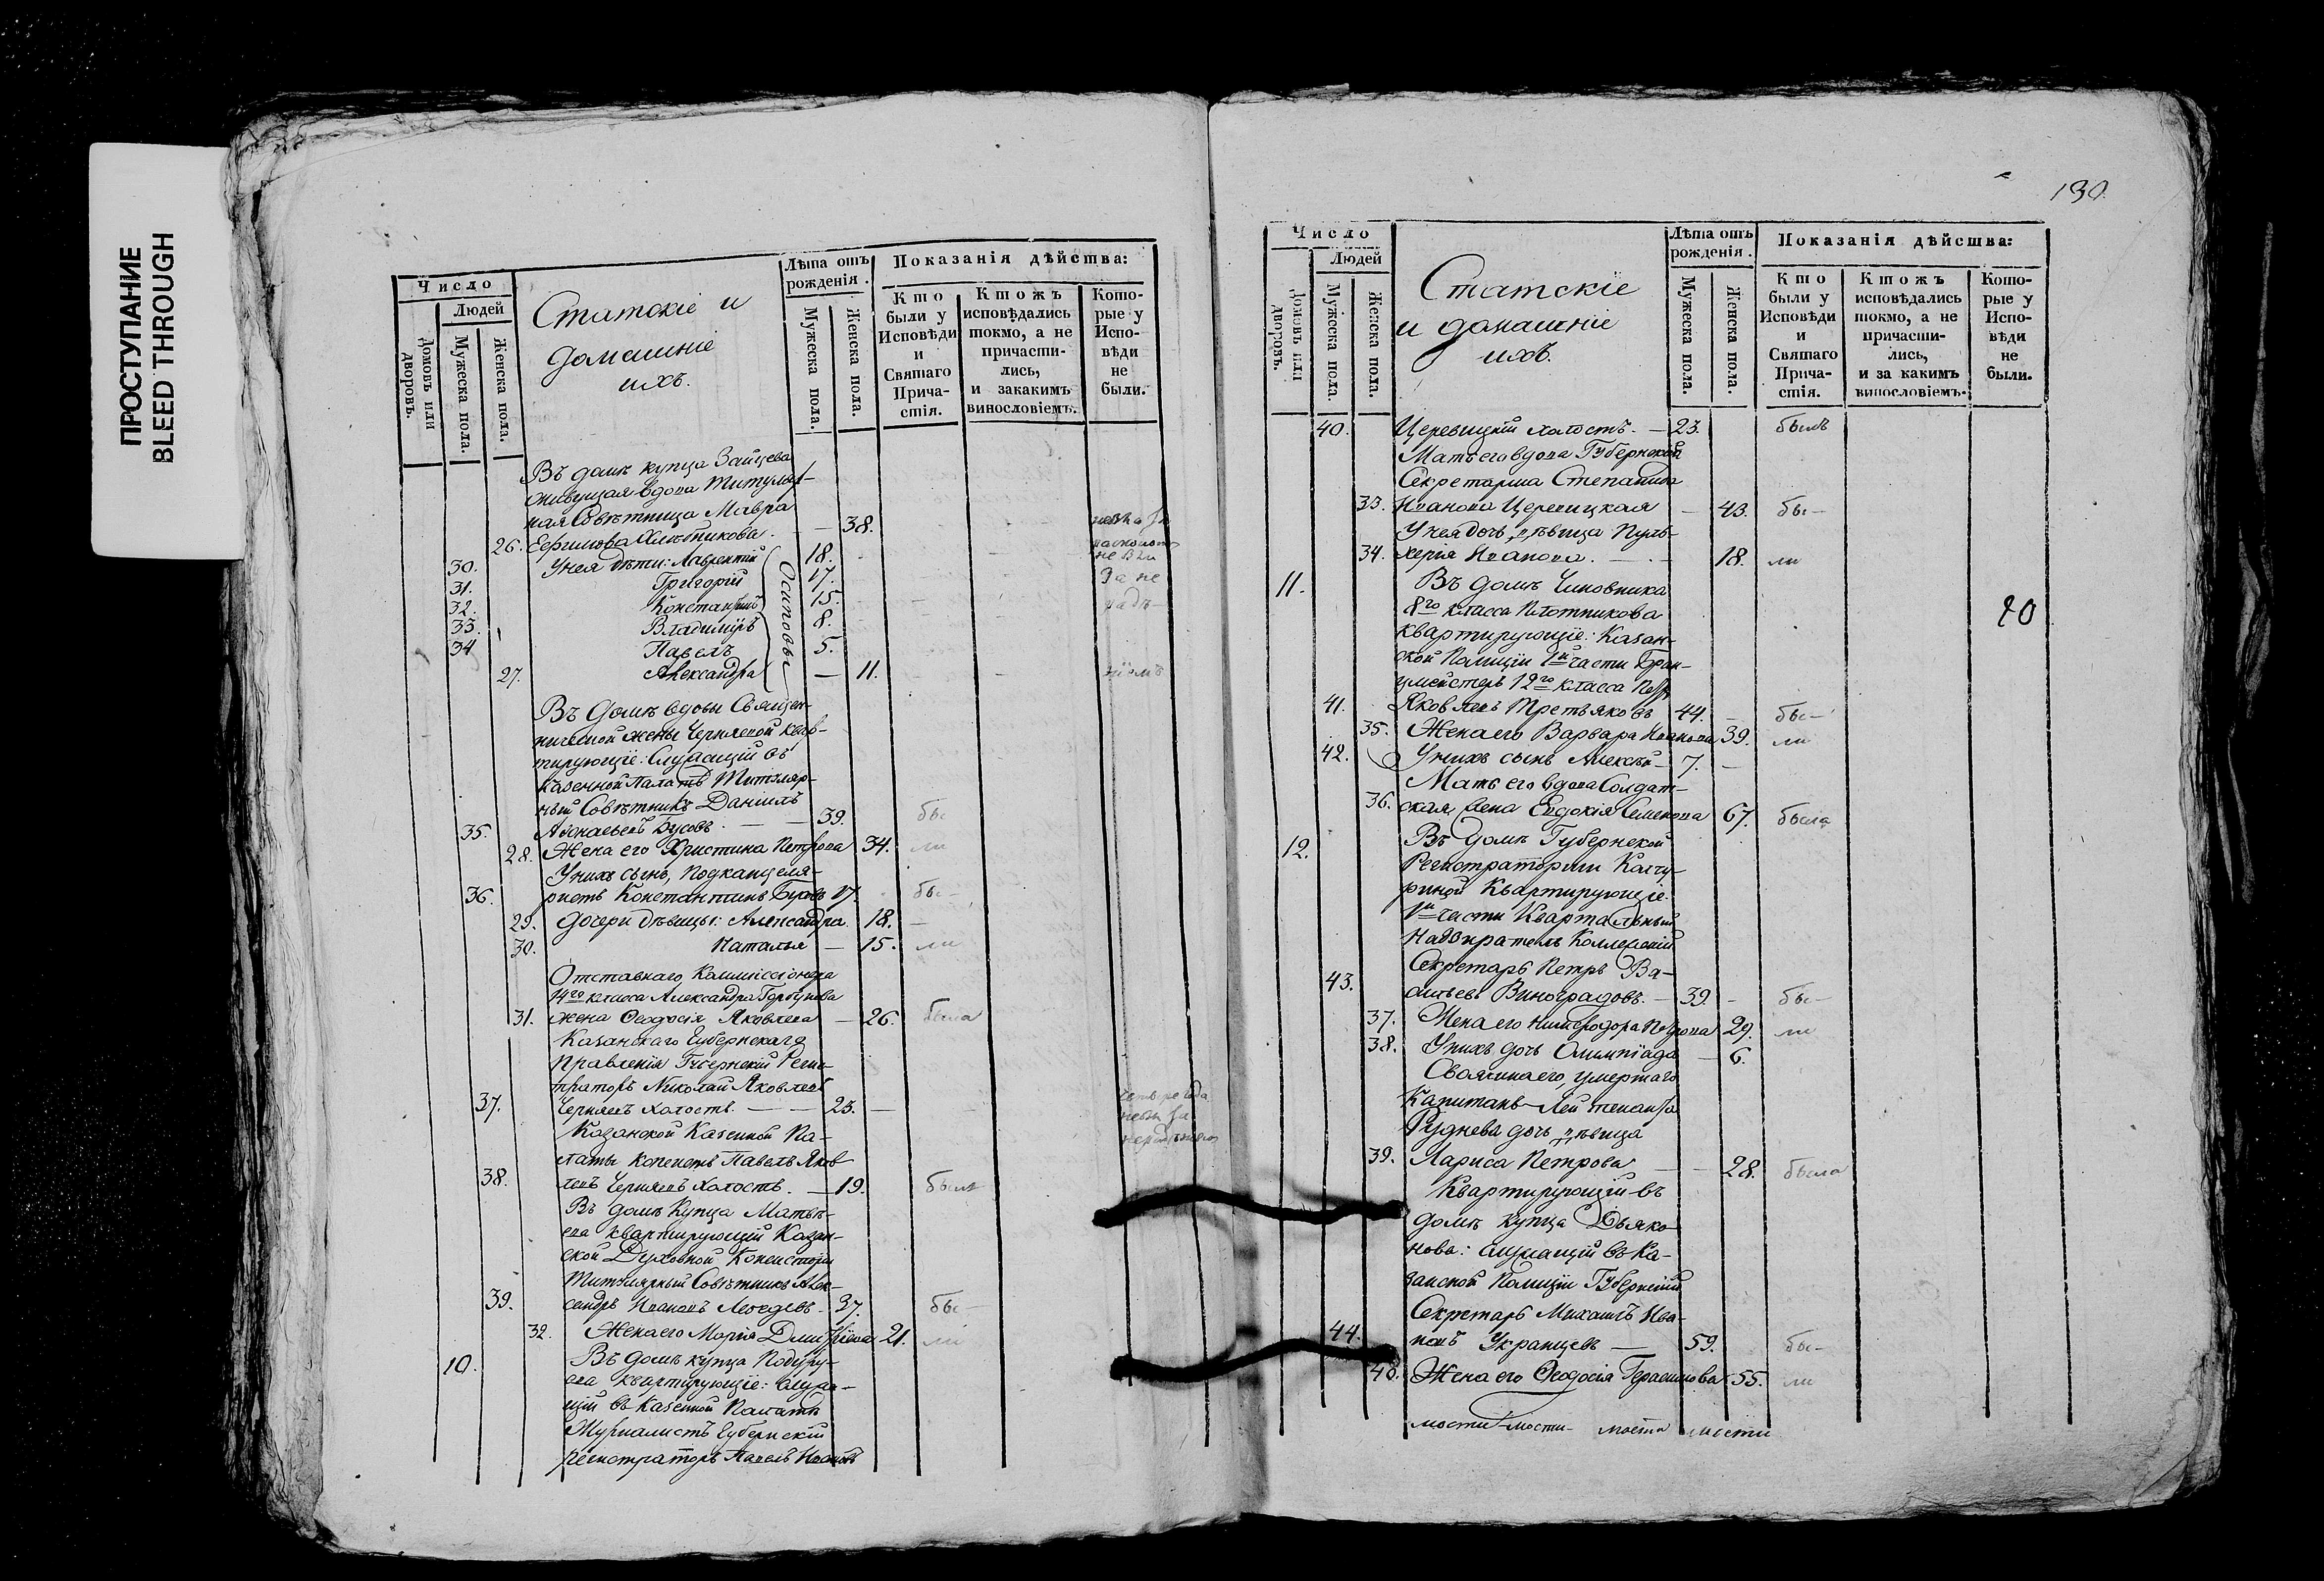 ПРОСТУПАНИЕ
BLEED THROUGH
Число
Людей
Домовъ или дворовъ.
Мужеска пола.
Женска пола.
Статскіе и
домашніе
ихъ.
Лѣта отъ рожденія.
Мужеска пола.
Женска пола.
Показанія дѣйства:
Кто были у Исповѣди и Святаго Прича-стія.
Ктожъ исповѣдались токмо, а не причасти-лись, и закакимъ винословіемъ.
Кото-рые у Испо-вѣди не были.
Въ домѣ купца Зайцева
живущая вдова Титуляр-
ная Совѣтница Мавра
26. Ефимова — 38.
30. У нея дѣти: Лаврентій 18.
31. Григорій 17.
32. Константинъ 15.
33. Владиміръ 8.
34 Павелъ 5.
27. Александра — 11.
Осиповы
Въ домѣ вдовы Священ-
нической жены Черняевой квар-
тирующіе: Служащій въ
Казенной Палатѣ Титуляр-
ный Совѣтникъ Даніилъ
35. Бусовъ. — 39. бы
28. Жена его Христина Петрова 34. ли
У нихъ сынъ, Подканцеля-
36. ристъ Константинъ Бусовъ 17. бы-
29. Дочери дѣвицы: Александра 18. —
30. Наталья — 15. ли
Отставнаго Коммиссіонера
14го класса Александра Горбунова
31. жена Ѳеодосія Яковлева — 26. была
Казанскаго Губернскаго
Правленія Губернскій Реги-
траторъ Николай Яковлевъ
37. Черняевъ холостъ. — 23. —
Казанской Казенной Па-
латы Копеистъ Павелъ Яков
38. левъ Черняевъ холостъ. — 19. былъ
Въ домѣ Купца Матвѣ-
ева квартирующій Казан-
ской Духовной Консисторіи
Титулярный Совѣтникъ Алек-
39. сандръ Ивановъ Лебедевъ 37. бы-
32. Жена его Марія Дмитріева 21. ли
10. Въ домѣ купца
квартирующіе: служа-
щій въ Казенной Палатѣ
Журналистъ Губернскій
регистраторъ Павелъ Ивановъ
130.
Число
Людей
Домовъ или дворовъ.
Мужеска пола.
Женска пола.
Статскіе
и домашніе
ихъ.
Лѣта отъ рожденія.
Мужеска пола.
Женска пола.
Показанія дѣйства:
Кто были у Исповѣди и Святаго Прича-стія.
Ктожъ исповѣдались токмо, а не причасти-лись, и за какимъ винословіемъ.
Кото-рые у Испо-вѣди не были.
40. Церевицкій холостъ. — 23. былъ
Мать его вдова Губернская
Секретарша Степанида
33. Иванова Церевицкая — 43. бы-
У нея дочь, дѣвица Пуль-
34. херія Иванова. — 18. ли
11. Въ домѣ Чиновника
8го класса Плотникова
квартирующіе: Казан-
ской Полиціи 1й части Бран-
цмейстеръ 12го класса Петръ
41. Яковлевъ Третьяковъ 44. — бы-
35. Жена его Варвара Иванова 39. ли
42. У нихъ сынъ Алексѣй 7. —
Мать его вдова Солдат-
36. ская жена Евдокія Семенова 67. была
12. Въ домѣ Губернской
Регистраторши Качу-
риной Квартирующіе:
1й части Квартальный
Надзиратель Коллежскій
Секретарь Петръ Ва-
43. сильевъ Виноградовъ. — 39. — бы-
37. Жена его Нимфодора Петрова 29. ли
38. У нихъ дочь Олимпіада — 6.
Своячина его, умершаго
Капитанъ-Лейтенанта
Руднева дочь дѣвица
39. Лариса Петрова — 28. была
Квартирующій въ
домѣ купца Дьяко-
нова: служащій въ Ка-
занской Полиціи Губернскій
Секретарь Михаилъ Ива-
44. новъ Украинцевъ — 59. бы-
40. Жена его Ѳеодосія Герасимова 55. ли